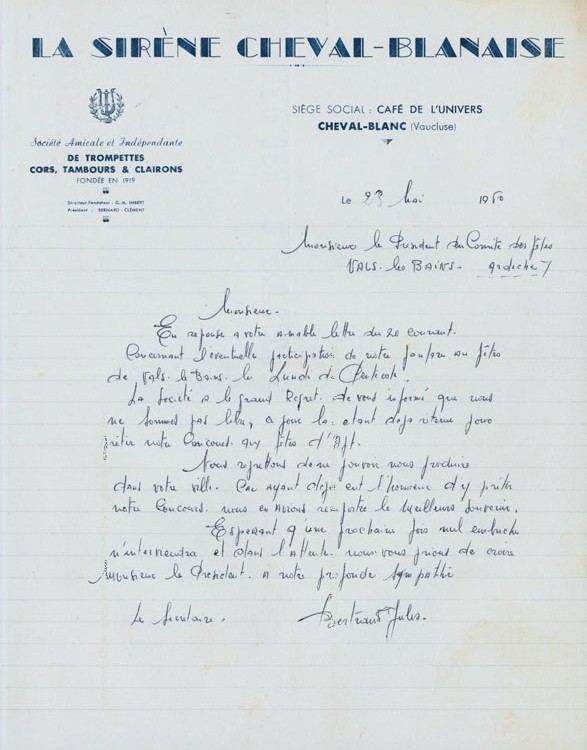 LA SIRÈNE CHEVAL-BLANAISE
Société Amicale et Indépendante
DE TROMPETTES
CORS, TAMBOURS & CLAIRONS
FONDÉE EN 1919
Directeur-Fondateur : G.-M. IMBERT
Président : BERNARD-CLÉMENT
SIÈGE SOCIAL : CAFÉ DE L'UNIVERS
CHEVAL-BLANC (Vaucluse)
Le 23 Mai 1950
Monsieur le Président du Comité des fêtes
VALS-les BAINS - Ardèche
Monsieur.
En reponse a votre aimable lettre du 20 courant.
Concernant l'eventuelle participation de notre fanfare au fêtes
de Vals. le Bains. le Lundi de Pentecote.
La Société a le grand Regret. de vous informé que nous
ne sommes pas libre, ce jour la: etant deja retenu pour
prêter notre Concours. aux fêtes d'Apt.
Nous regrettons de ne pouvoir nous produire
dans votre ville. Car ayant deja eut l'honneur d'y prêter
notre Concours. nous en avons remporté le meilleurs souvenir.
Esperant q'une prochaine fois nul embuche
n'interviendra et dans l'Attente. nous vous prions de croire
Monsieur le President. a notre profonde sympathie
Le Secretaire.
Bertrand Jules.